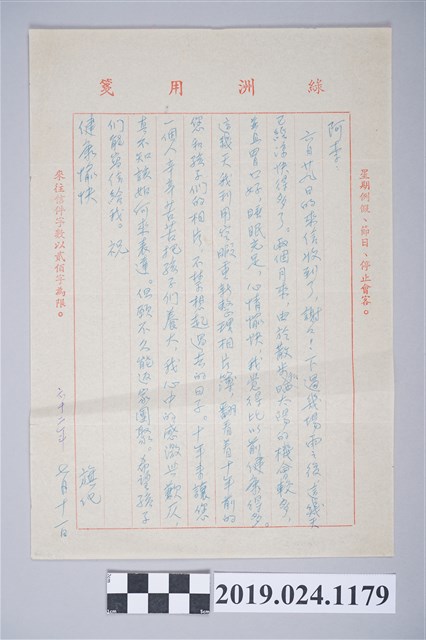 綠洲用箋
星期例假、節日、停止會客。
阿李：
六月廿九日的來信收到了，謝々！下過幾場雨之後這幾天
已經涼快得多了。兩個月來，由於散步曬太陽的機會較多，
並且胃口好，睡眠充足，心情愉快，我覺得比以前健康得多。
這幾天我利用空暇重新整理相片簿，翻看看十年前的
您和孩子們的相片，不禁想起過去的日子。十年來讓您
一個人辛辛苦苦把孩子們養大，我心中的感激與歉疚，
真不知該如何來表達。但願不久能返家團聚。希望孩子
們能寫信給我。祝
健康愉快
旗化
六十二年七月十一日
來往信件字數以貳佰字為限。
2019.024.1179